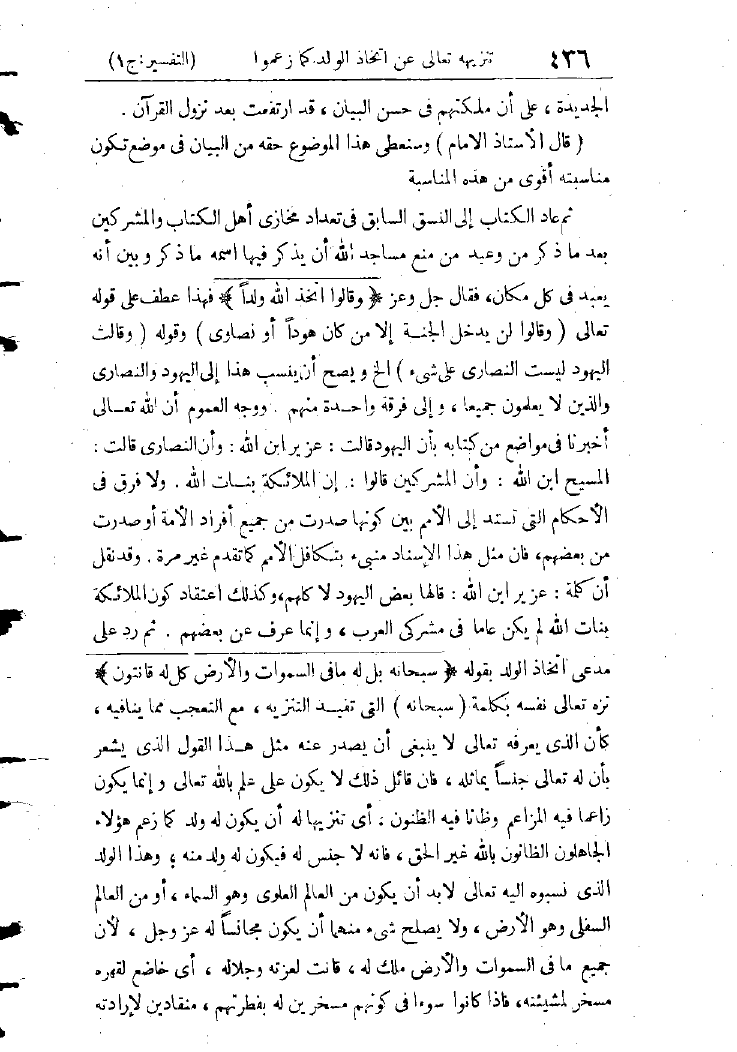 ٤٣٦ تنزيهه تعالى عن اتخاذ الولد كما زعموا (التفسير:ج١)
الجديدة ، على أن ملكتهم فى حسن البيان ، قد ارتفعت بعد نزول القرآن .
( قال الأستاذ الامام ) وسنعطى هذا الموضوع حقه من البيان فى موضع تكون
مناسبته أقوى من هذه المناسبة
ثم عاد الكتاب إلى النسق السابق فى تعداد مخازى أهل الكتاب والمشركين
بعد ما ذكر من وعيد من منع مساجد الله أن يذكر فيها اسمه ما ذكر وبين أنه
يعبد فى كل مكان، فقال جل وعز ﴿ وقالوا اتخذ الله ولداً ﴾ فهذا عطف على قوله
تعالى ( وقالوا لن يدخل الجنة إلا من كان هوداً أو نصارى ) وقوله ( وقالت
اليهود ليست النصارى على شىء ) الخ ويصح أن ينسب هذا إلى اليهود والنصارى
والذين لا يعلمون جميعا ، وإلى فرقة واحدة منهم . ووجه العموم أن الله تعالى
أخبرنا فى مواضع من كتابه بأن اليهود قالت : عزير ابن الله : وأن النصارى قالت :
المسيح ابن الله : وأن المشركين قالوا : إن الملائكة بنات الله . ولا فرق فى
الأحكام التى تسند إلى الأمم بين كونها صدرت من جميع أفراد الأمة أو صدرت
من بعضهم، فان مثل هذا الإسناد منبىء بتكافل الأمم كما تقدم غير مرة . وقد نقل
أن كلمة : عزير ابن الله : قالها بعض اليهود لا كلهم، وكذلك اعتقاد كون الملائكة
بنات الله لم يكن عاما فى مشركى العرب ، وإنما عرف عن بعضهم . ثم رد على
مدعى اتخاذ الولد بقوله ﴿ سبحانه بل له مافى السموات والأرض كل له قانتون ﴾
نزه تعالى نفسه بكلمة ( سبحانه ) التى تفيد التنزيه ، مع التعجب مما ينافيه ،
كأن الذى يعرفه تعالى لا ينبغى أن يصدر عنه مثل هذا القول الذى يشعر
بأن له تعالى جنساً يماثله ، فان قائل ذلك لا يكون على علم بالله تعالى وإنما يكون
زاعما فيه المزاعم وظانا فيه الظنون . أى تنزيها له أن يكون له ولد كما زعم هؤلاء
الجاهلون الظانون بالله غير الحق ، فانه لا جنس له فيكون له ولد منه ؛ وهذا الولد
الذى نسبوه اليه تعالى لابد أن يكون من العالم العلوى وهو السماء ، أو من العالم
السفلى وهو الأرض ، ولا يصلح شىء منهما أن يكون مجانساً له عز وجل ، لأن
جميع ما فى السموات والأرض ملك له ، قانت لعزته وجلاله ، أى خاضع لقهره
مسخر لمشيئته، فاذا كانوا سوءا فى كونهم مسخرين له بفطرتهم ، منقادين لإرادته